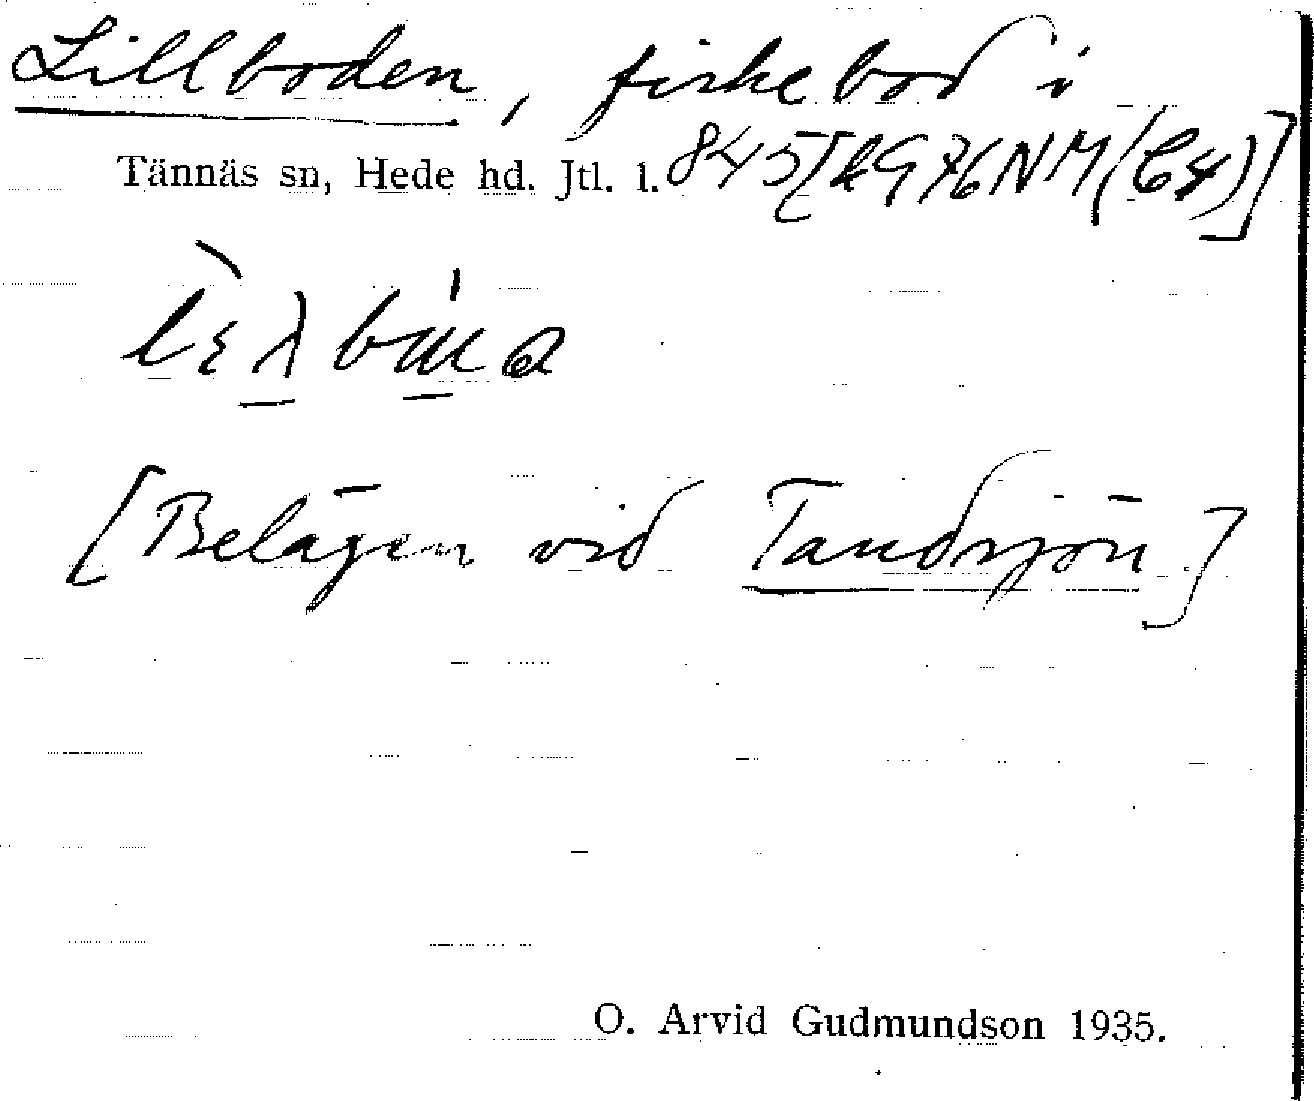 Lillboden, fiskebod i
Tännäs sn, Hede hd. Jtl. l. 845
[Belägen vid Tandsjön]
O. Arvid Gudmundson 1935.